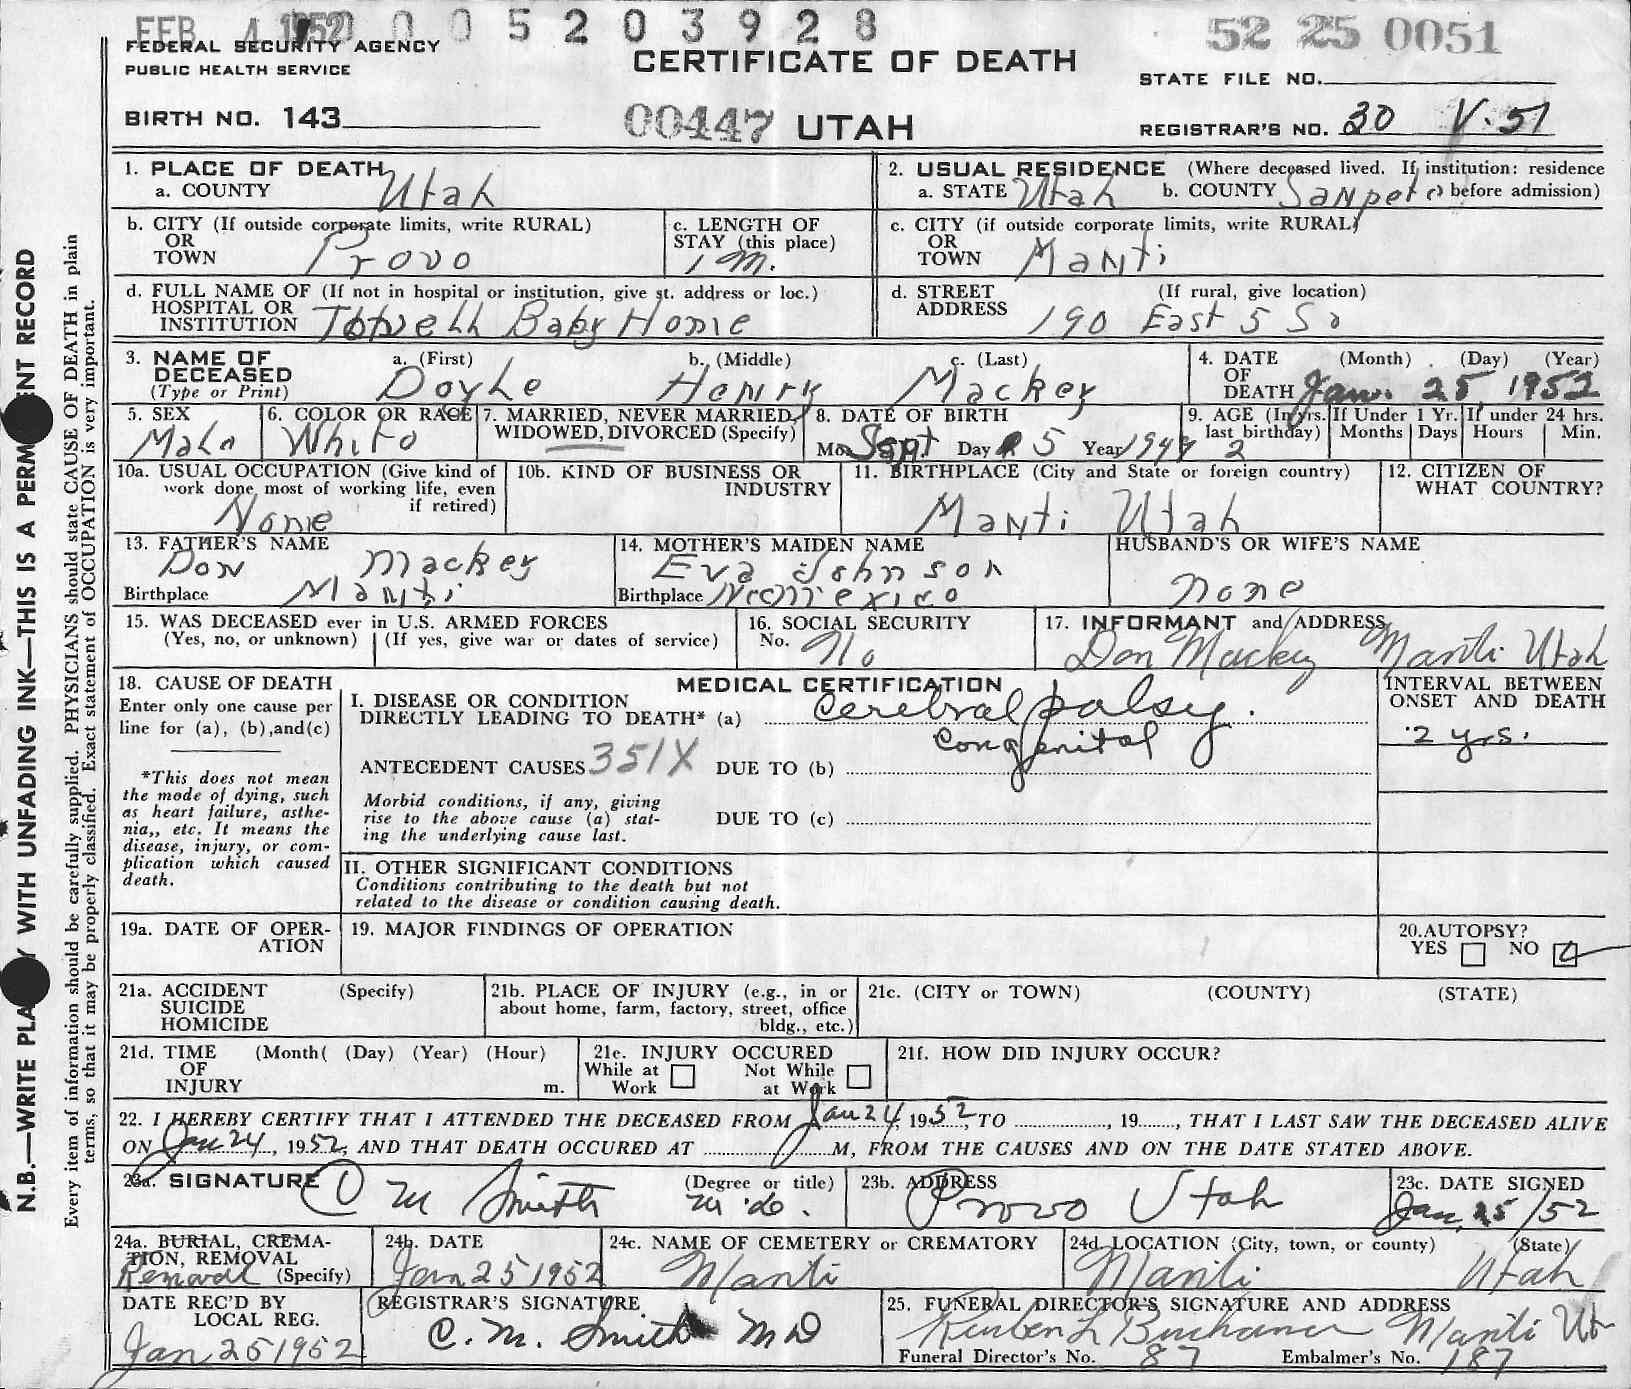 FEB 4 1952 0 0 5 2 0 3 9 2 8 52 25 0051
FEDERAL SECURITY AGENCY
PUBLIC HEALTH SERVICE
CERTIFICATE OF DEATH
STATE FILE NO.
BIRTH NO. 143 00447 UTAH
REGISTRAR'S NO. 30 V-51
N.B.—WRITE PLA Y WITH UNFADING INK—THIS IS A PERM ENT RECORD
Every item of information should be carefully supplied. PHYSICIANS should state CAUSE OF DEATH in plain
terms, so that it may be properly classified. Exact statement of OCCUPATION is very important.
1. PLACE OF DEATH
a. COUNTY Utah
2. USUAL RESIDENCE (Where deceased lived. If institution: residence
a. STATE Utah b. COUNTY Sanpete before admission)
b. CITY (If outside corporate limits, write RURAL)
OR
TOWN Provo
c. LENGTH OF
STAY (this place)
1 M.
c. CITY (if outside corporate limits, write RURAL)
OR
TOWN Manti
d. FULL NAME OF (If not in hospital or institution, give st. address or loc.)
HOSPITAL OR
INSTITUTION Baby Home
d. STREET (If rural, give location)
ADDRESS 190 East 5 So
3. NAME OF DECEASED
(Type or Print)
a. (First) b. (Middle) c. (Last)
Doyle Henry Mackey
4. DATE (Month) (Day) (Year)
OF
DEATH Jan. 25, 1952
5. SEX
Male
6. COLOR OR RACE
White
7. MARRIED, NEVER MARRIED,
WIDOWED, DIVORCED (Specify)
8. DATE OF BIRTH
Mo. Sept Day 5 Year 1949
9. AGE (In yrs. last birthday) 2
If Under 1 Yr. Months Days
If under 24 hrs. Hours Min.
10a. USUAL OCCUPATION (Give kind of
work done most of working life, even
if retired)
None
10b. KIND OF BUSINESS OR
INDUSTRY
11. BIRTHPLACE (City and State or foreign country)
Manti Utah
12. CITIZEN OF
WHAT COUNTRY?
13. FATHER'S NAME
Don Mackey
Birthplace Manti
14. MOTHER'S MAIDEN NAME
Eva Johnson
Birthplace
HUSBAND'S OR WIFE'S NAME
none
15. WAS DECEASED ever in U.S. ARMED FORCES
(Yes, no, or unknown) (If yes, give war or dates of service)
16. SOCIAL SECURITY
No. No
17. INFORMANT and ADDRESS
Don Mackey Manti Utah
18. CAUSE OF DEATH
Enter only one cause per
line for (a), (b),and(c)
*This does not mean
the mode of dying, such
as heart failure, asthe-
nia,, etc. It means the
disease, injury, or com-
plication which caused
death.
MEDICAL CERTIFICATION
I. DISEASE OR CONDITION
DIRECTLY LEADING TO DEATH* (a) Cerebral palsy.
congenital
ANTECEDENT CAUSES 351X DUE TO (b)
Morbid conditions, if any, giving
rise to the above cause (a) stat-
ing the underlying cause last.
DUE TO (c)
INTERVAL BETWEEN
ONSET AND DEATH
2 yrs.
II. OTHER SIGNIFICANT CONDITIONS
Conditions contributing to the death but not
related to the disease or condition causing death.
19a. DATE OF OPER-
ATION
19. MAJOR FINDINGS OF OPERATION
20.AUTOPSY?
YES NO
21a. ACCIDENT (Specify)
SUICIDE
HOMICIDE
21b. PLACE OF INJURY (e.g., in or
about home, farm, factory, street, office
bldg., etc.)
21c. (CITY or TOWN) (COUNTY) (STATE)
21d. TIME (Month( (Day) (Year) (Hour)
OF
INJURY m.
21e. INJURY OCCURED
While at Work Not While at Work
21f. HOW DID INJURY OCCUR?
22. I HEREBY CERTIFY THAT I ATTENDED THE DECEASED FROM Jan 24, 1952, TO , 19 , THAT I LAST SAW THE DECEASED ALIVE
ON Jan 24, 1952, AND THAT DEATH OCCURED AT M, FROM THE CAUSES AND ON THE DATE STATED ABOVE.
23a. SIGNATURE (Degree or title)
C M Smith M.D.
23b. ADDRESS
Provo Utah
23c. DATE SIGNED
Jan. 25/52
24a. BURIAL, CREMA-
TION, REMOVAL
Removal (Specify)
24b. DATE
Jan 25 1952
24c. NAME OF CEMETERY or CREMATORY
Manti
24d. LOCATION (City, town, or county) (State)
Manti Utah
DATE REC'D BY
LOCAL REG.
Jan 25 1952
REGISTRAR'S SIGNATURE
C. M. Smith MD
25. FUNERAL DIRECTOR'S SIGNATURE AND ADDRESS
Reuben L Buchanan Manti Ut
Funeral Director's No. 87 Embalmer's No. 187